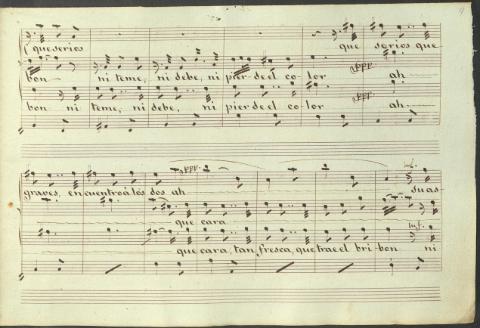 que serios que serios que
bon - ni teme, ni debe, ni pierde el color ah
bon ni teme, ni debe, ni pierde el color ah
graves, encuentro á los dos ah suas-
que cara
que cara, tan fresca, que trae el bribon ni